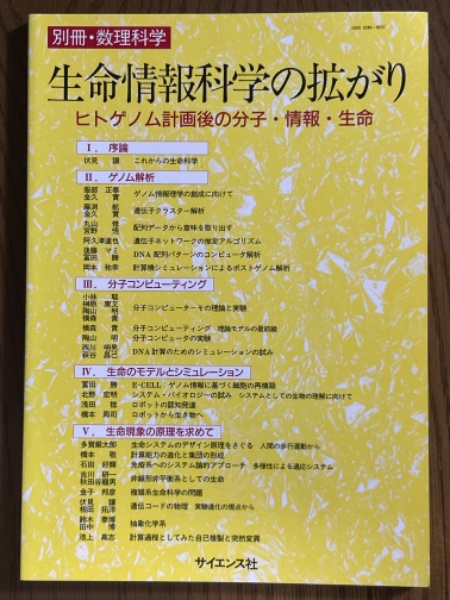 別冊・数理科学
生命情報科学の拡がり
ヒトゲノム計画後の分子・情報・生命
Ⅰ. 序論
伏見 譲 これからの生命科学
Ⅱ. ゲノム解析
服部 正泰
金久 實 ゲノム情報理学の創成に向けて
藤渕 航
金久 實 遺伝子クラスター解析
丸山 修
宮野 悟 配列データから意味を取り出す
阿久津達也 遺伝子ネットワークの推定アルゴリズム
後藤 マミ
冨田 勝 DNA配列パターンのコンピュータ解析
岡本 祐幸 計算機シミュレーションによるポストゲノム解析
Ⅲ. 分子コンピューティング
小林 聡
榊原 康文
陶山 明
横森 貴 分子コンピューターその理論と実験
横森 貴 分子コンピューティング 理論モデルの最前線
陶山 明 分子コンピュータの実験
西川 明男
萩谷 昌己 DNA計算のためのシミュレーションの試み
Ⅳ. 生命のモデルとシミュレーション
冨田 勝 E-CELL:ゲノム情報に基づく細胞の再構築
北野 宏明 システム・バイオロジーの試み システムとしての生物の理解に向けて
浅田 稔 ロボットの認知発達
橋本 周司 ロボットから生き物へ
Ⅴ. 生命現象の原理を求めて
多賀厳太郎 生命システムのデザイン原理をさぐる 人間の歩行運動から
橋本 敬 計算能力の進化と集団の形成
石田 好輝 免疫系へのシステム論的アプローチ 多様性による適応システム
吉川 研一
秋田谷龍男 非線形非平衡系としての生命
金子 邦彦 複雑系生命科学の問題
伏見 譲
相田 拓洋 遺伝コードの物理 実験進化の視点から
鈴木 泰博
田中 博 抽象化学系
池上 高志 計算過程としてみた自己複製と突然変異
サイエンス社